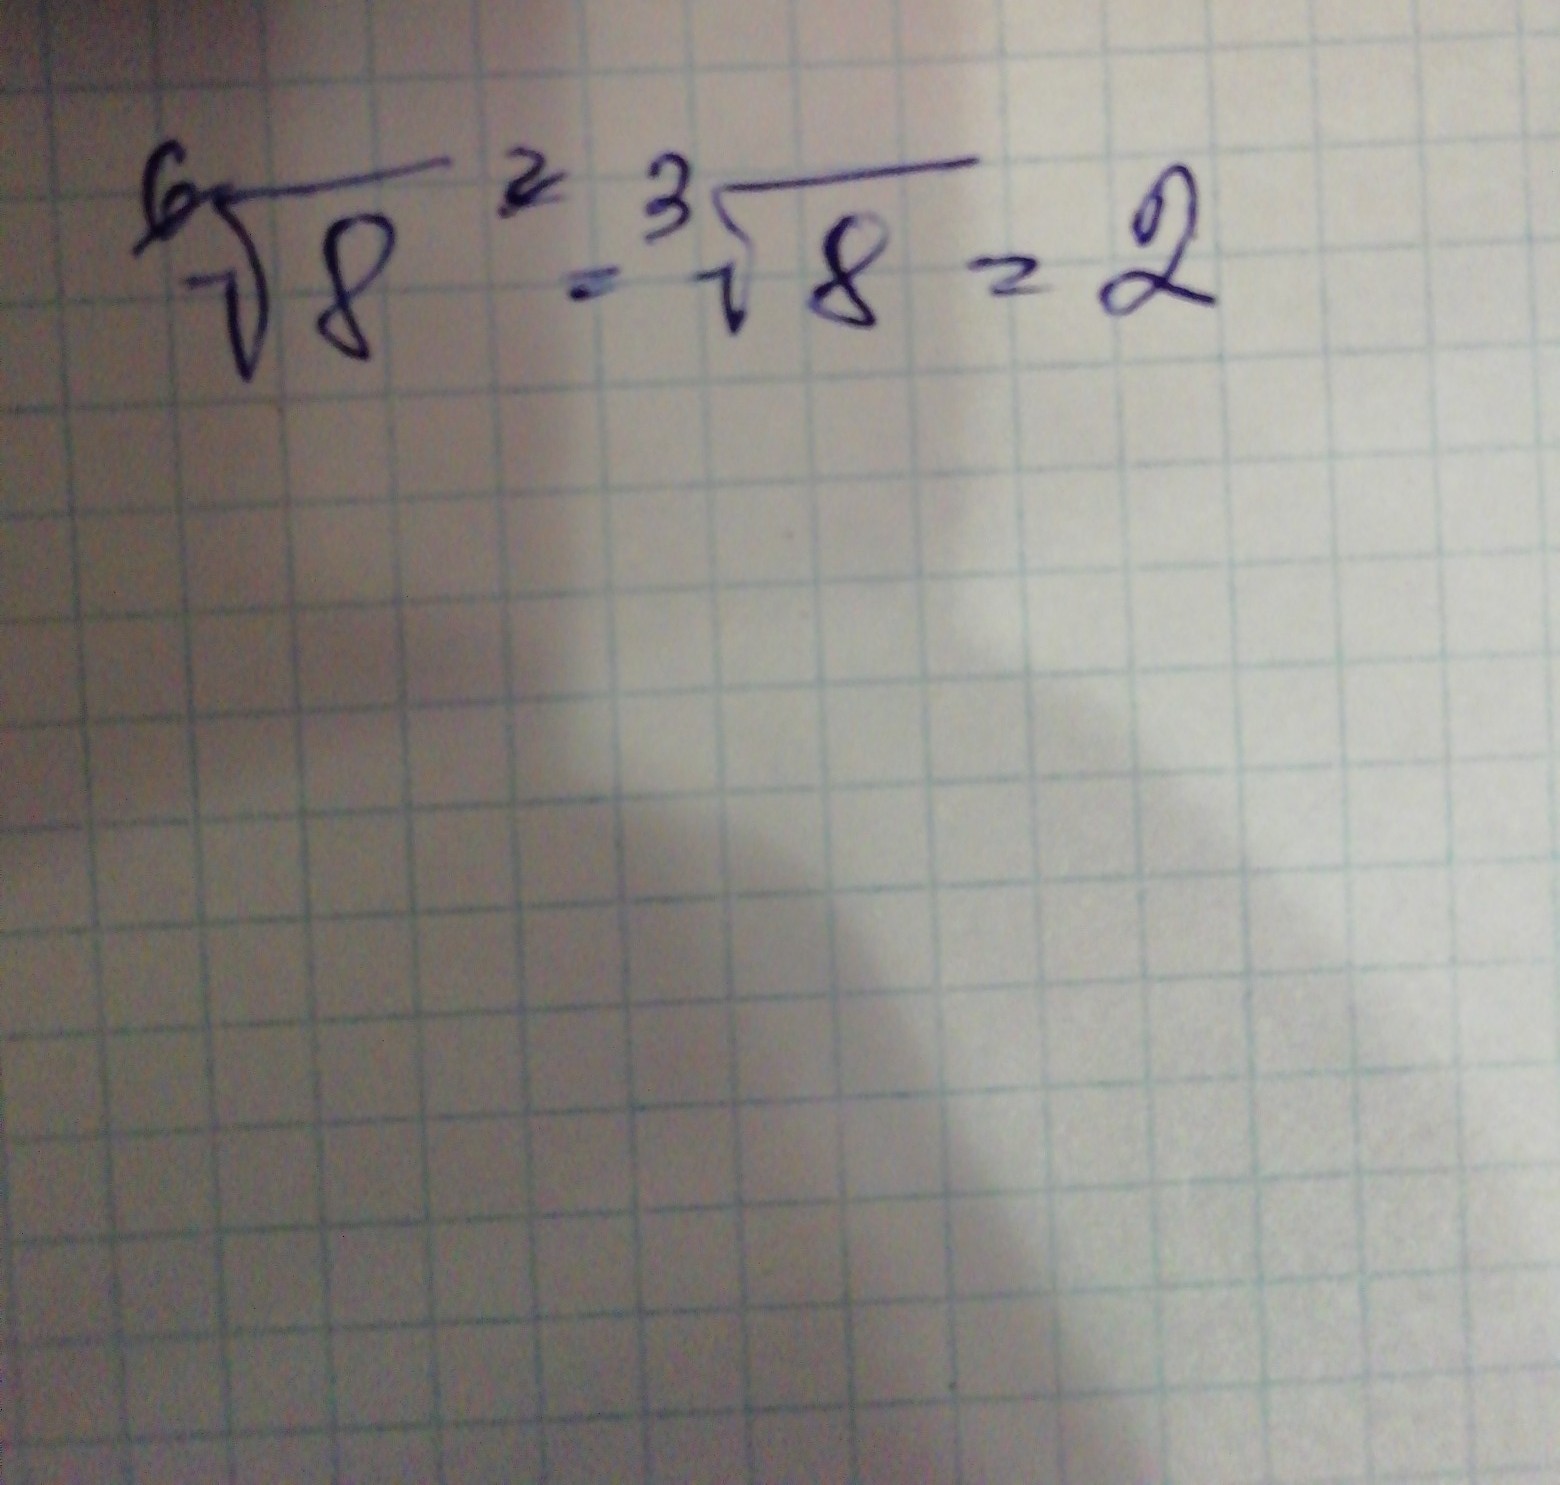 ⁶√8 ² = ³√8 = 2